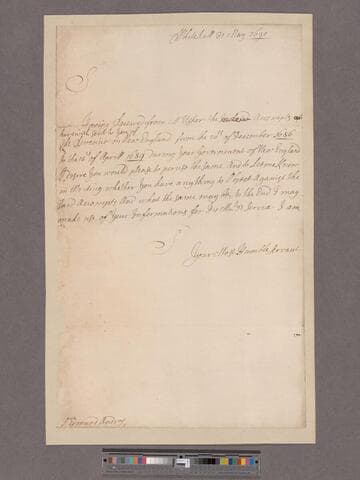 Whitehall 31 May 1690
S
Having Received from Mr Usher the Accounts
herewith sent to you of
the Revenue in New England from the 20th of December 1686
to the of Aprill 1689 during your Government of New England
I desire you would please to peruse the same And to let me know
in writing whether you have any thing to Object Against the
said Accounts And what the same may be, to the End I may
make use of your Informations for his Mats Service I am
S
Your Most Humble Servant
Edmund Andros